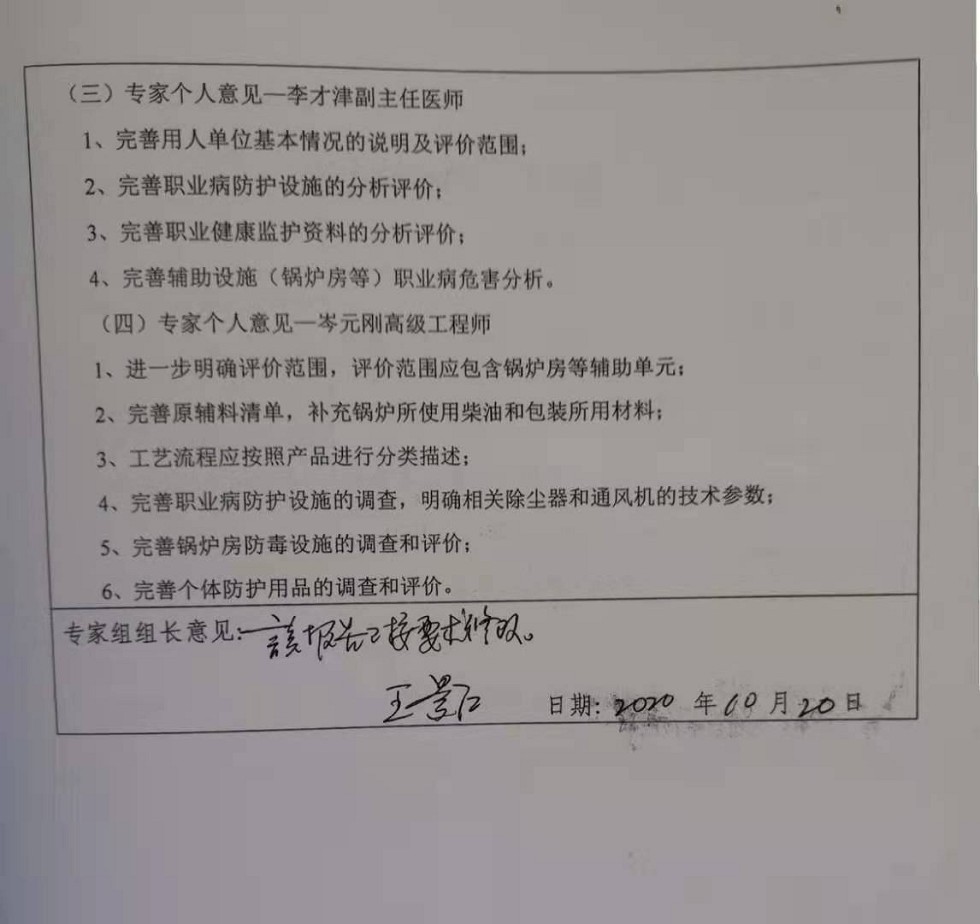 （三）专家个人意见—李才津副主任医师
1、完善用人单位基本情况的说明及评价范围；
2、完善职业病防护设施的分析评价；
3、完善职业健康监护资料的分析评价；
4、完善辅助设施（锅炉房等）职业病危害分析。
（四）专家个人意见—岑元刚高级工程师
1、进一步明确评价范围，评价范围应包含锅炉房等辅助单元；
2、完善原辅料清单，补充锅炉所使用柴油和包装所用材料；
3、工艺流程应按照产品进行分类描述；
4、完善职业病防护设施的调查，明确相关除尘器和通风机的技术参数；
5、完善锅炉房防毒设施的调查和评价；
6、完善个体防护用品的调查和评价。
专家组组长意见：该报告已按要求修改。
王景江 日期：2020 年 10 月 20 日